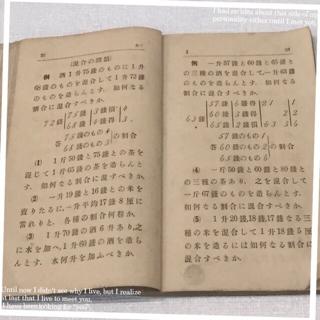 I had no idea about that side of my
personality either until I met you.
(混合の問題)
例 酒1升75錢のものに1升
68錢のものを
のものを造らんとす. 如何なる割
合に混合すべきか.
の割合
(1) 1斤50錢と75錢との茶を
混じて1斤65錢の茶を造らんと
す. 如何なる割合に混合すべきか.
(2) 一升19錢と16錢との米を
賣りたるに, 一升平均17錢8厘に
當れりと. 各種の割合何程か.
(3) 1升70錢の酒6升あり, 之
に水を加へ1升60錢の酒を造ら
んとす. 水何升を加ふべきか.
例 一升57錢と60錢と65錢と
の三種の酒を混合して一升63錢
のものを造らんとす. 如何なる割
合に混合すべきか.
63錢
57錢のもの1
答 60錢のもの2 の割合
65錢のもの
(4) 一斤50錢と60錢と80錢と
の三種の茶あり, 之を混合して
一斤
如何なる割合に混合すべきか.
(5) 1升20錢,18錢,17錢なる三
種の米を混合して1升18錢5厘
の米を造るには如何なる割合に
混合すべきか.
Until now I didn't see why I live, but I realize
it last that I live to meet you,
I have been looking for "you".